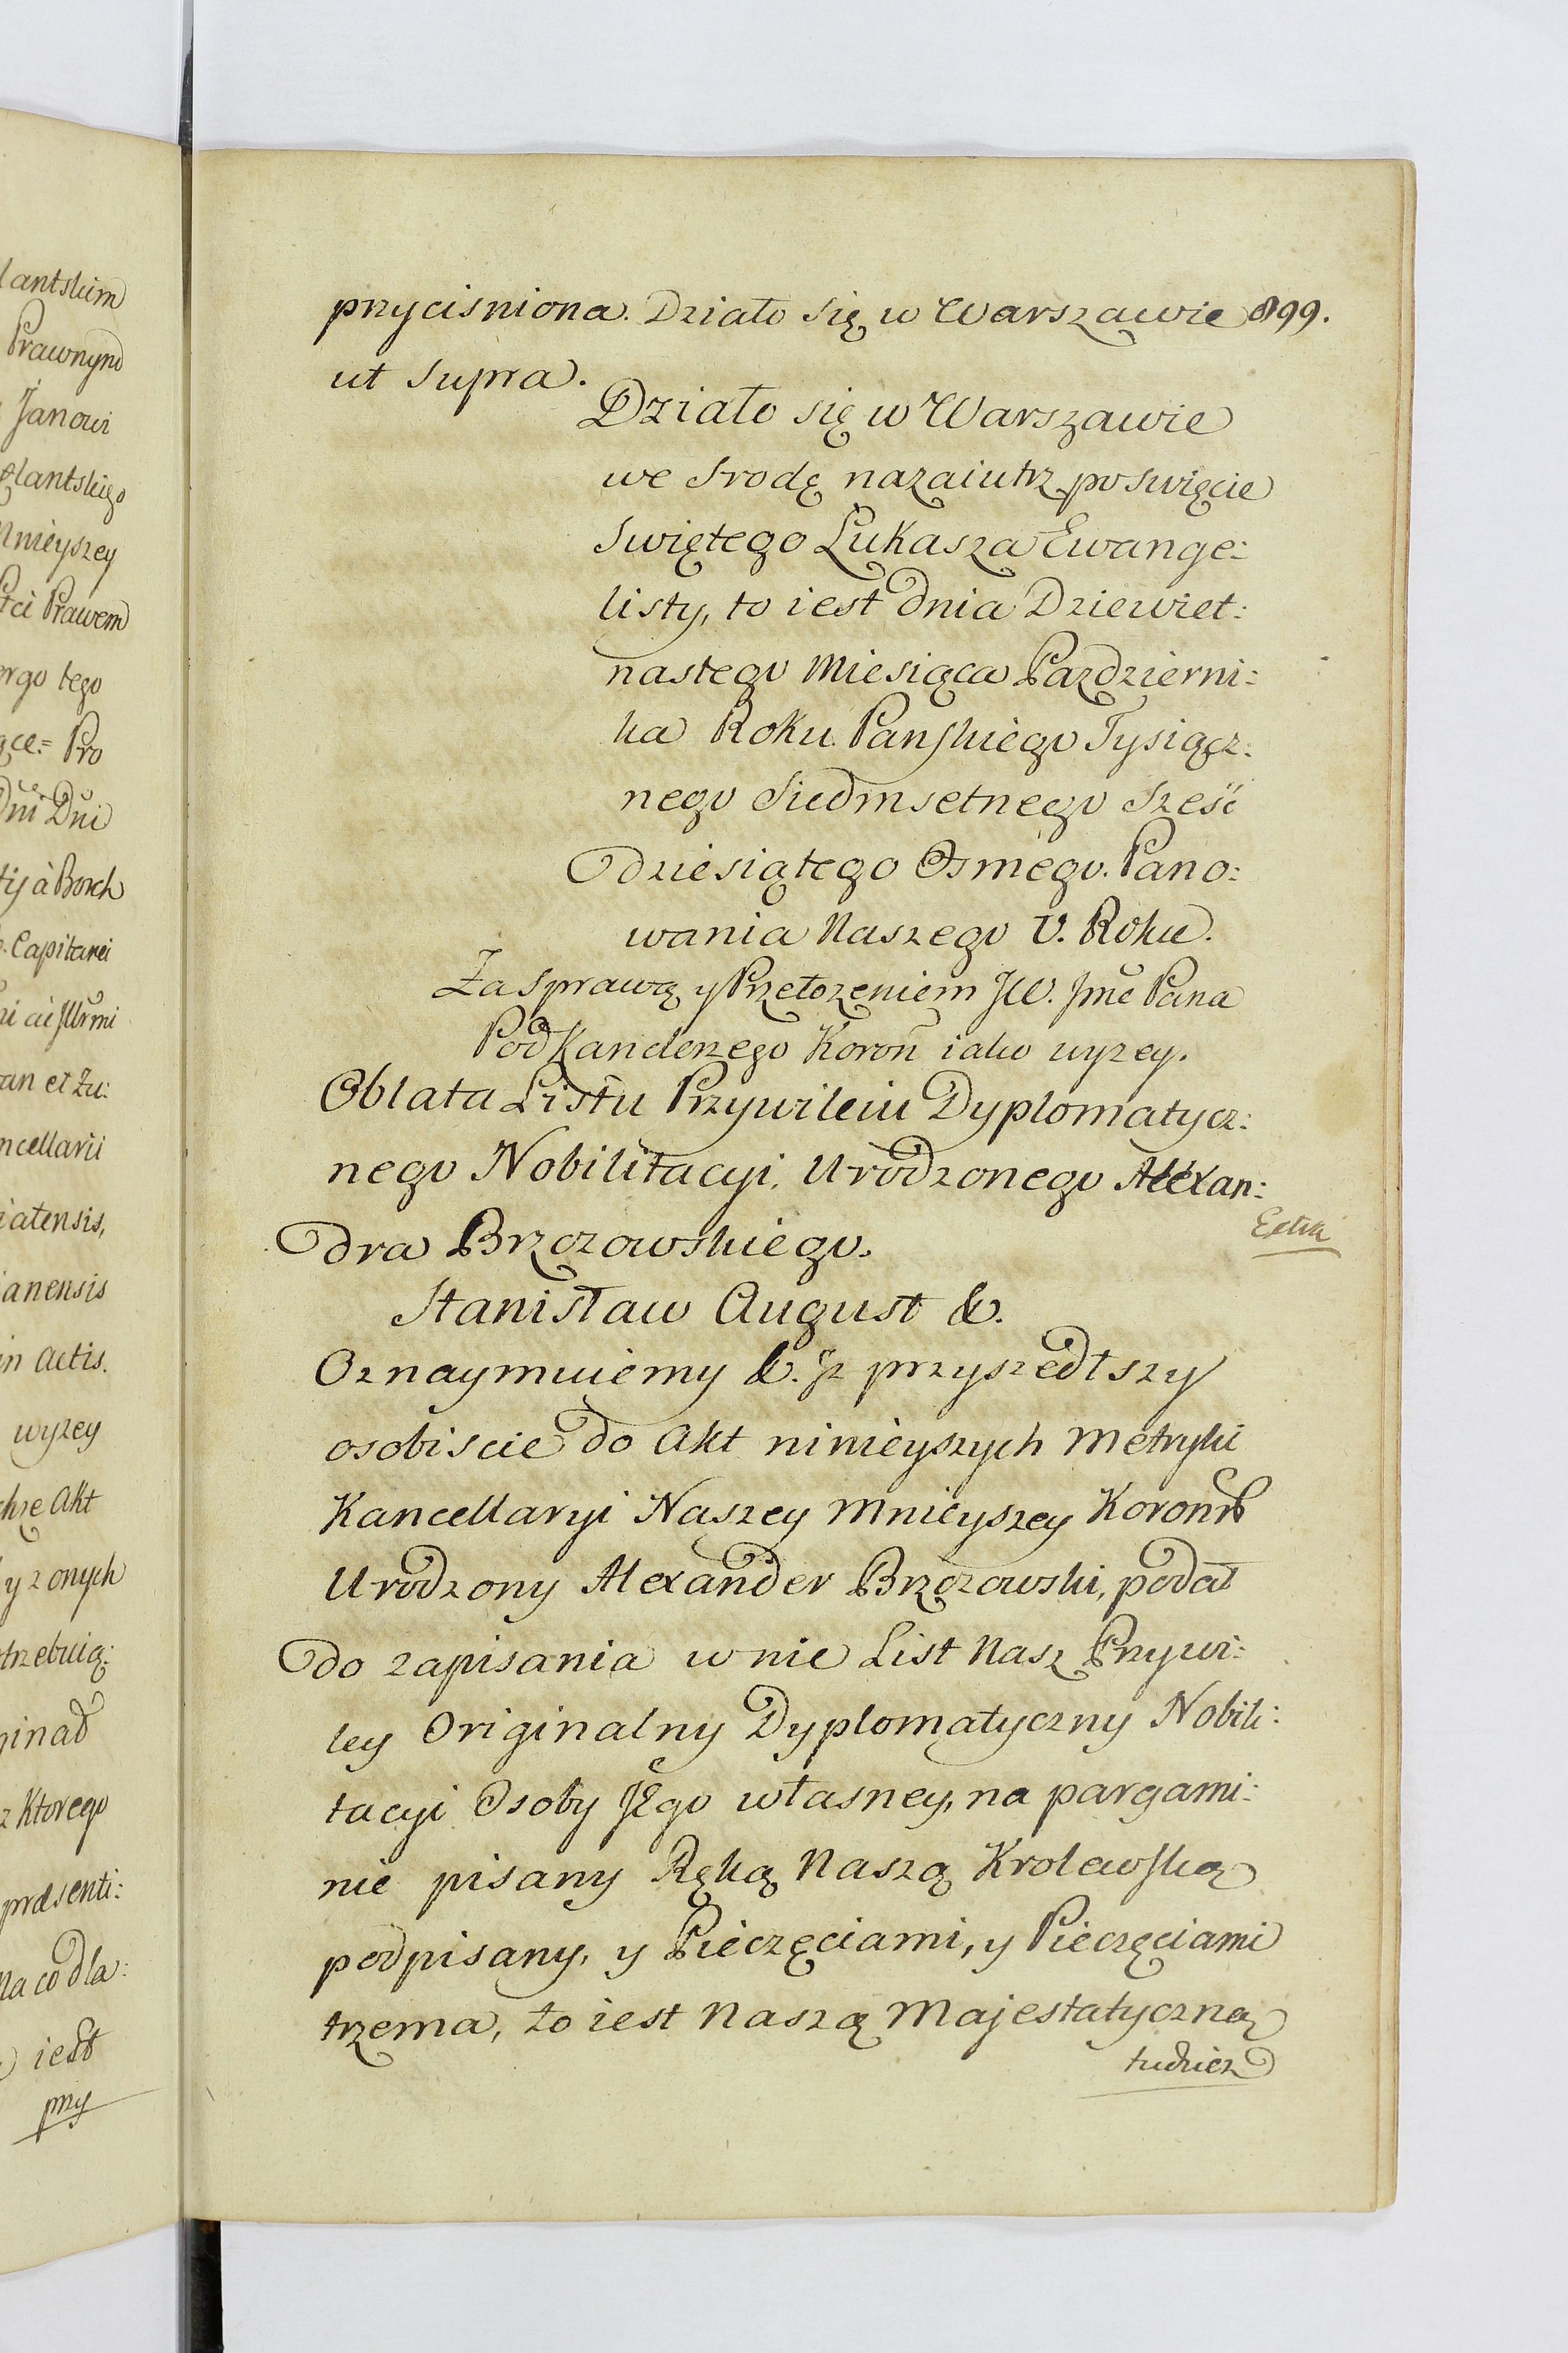 lantskim
Prawnym
Janowi
lantskiego
Mnieyszey
Prawem
tego
Pro
Dni
à Borch
Capitanei
et Zu:
ncellarii
iatensis,
anensis
in Actis.
wyzey
Akt
y z onych
trzebuią:
ginał
z Ktorego
præsenti:
Na co dla:
iest
przy
przycisniona. Działo się w Warszawie 899.
ut supra.
Działo się w Warszawie
we Srodę nazaiutrz po swięcie
Swiętego Łukasza Ewange:
listy, to iest dnia Dziewiet:
nastego Miesiąca Pazdzierni:
ka Roku Panskiego Tysiącz:
nego Siedmsetnego Sześć
dziesiątego Osmego. Pano:
wania Naszego V. Roku.
Za Sprawą y Przełozeniem JW. Jmć Pana
Podkanclerzego Koroñ iako wyzey.
Oblata Listu Przywileiu Dyplomatycz:
nego Nobilitacyi, Urodzonego Alexan:
dra Brzozowskiego.
Stanisław August &.
Oznaymuiemy &. Jz przyszedłszy
osobiscie do Akt ninieyszych Metryki
Kancellaryi Naszey Mnieyszey Koronñ
Urodzony Alexander Brzozowski, podał
do zapisania w nie List Nasz Przywi:
ley Originalny Dyplomatyczny Nobili:
tacyi Osoby Jego własney, na pargami:
nie pisany Ręką Naszą Krolewską
podpisany, y Pieczęciami, y Pieczęciami
trzema, to iest Naszą Majestatyczną
tudziez